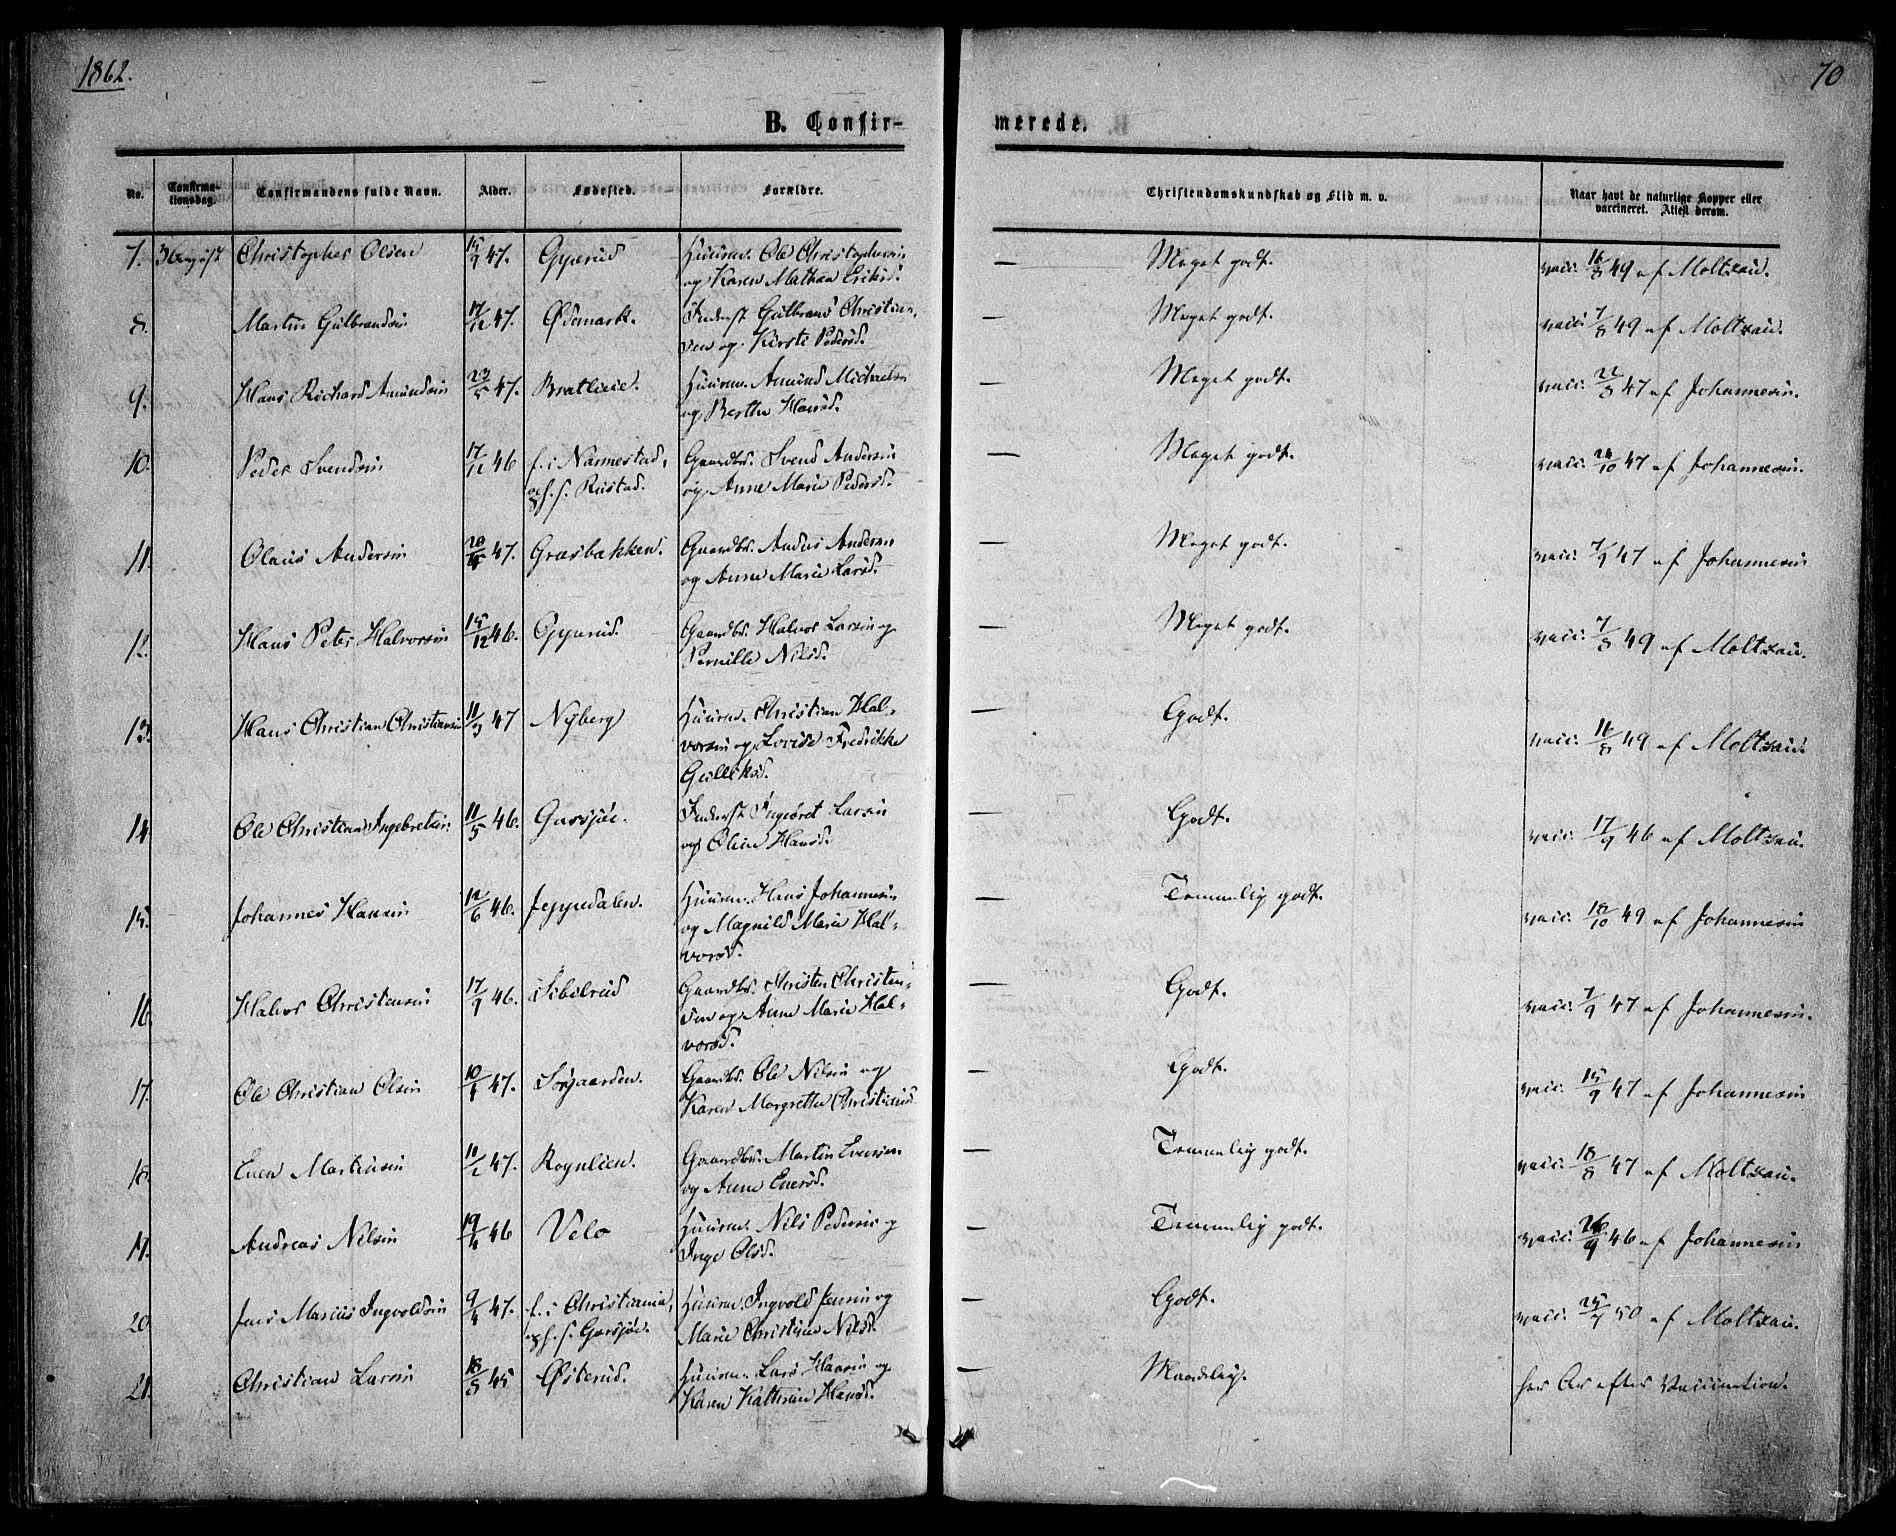 1862.
70
B. Confirmerede.
No. Confirmationsdag. Confirmandens fulde Navn. Alder. Fødested. Forældre. Christendomskundskab og Flid m. v. Naar havt de naturlige Kopper eller vaccineret. Attest derom.
7. 3 August Christopher Olsen 15/9 47. Opperud Huusm. Ole Christophersen — Meget godt. vacc. 16/8 49 af Moltzau.
og Karen Mathea Eriksd.
8. Martin Gulbrandsen 17/12 47. Ødemark. Inderst Gulbrand Christian- — Meget godt. vacc. 7/8 49 af Moltzau.
sen og Kirsti Pedersd.
9. Hans Richard Amundsen 23/5 47. Bratlieie. Huusm. Amund Michaelsen — Meget godt. vacc. 22/8 47 af Johannesen.
og Berthe Hansd.
10. Peder Svendsen 17/12 46 f. i Nannestad, Gaardbr. Svend Andersen — Meget godt. vacc. 24/10 47 af Johannesen.
oph. s. Rustad. og Anne Marie Pedersd.
11. Olaus Andersen 20/5 47. Græsbakken. Gaardbr. Anders Andersen — Meget godt. vacc. 7/9 47 af Johannesen
og Anne Marie Larsd.
12. Hans Peter Halvorsen 15/12 46. Opperud. Gaardbr. Halvor Larsen og — Meget godt. vacc. 7/8 49 af Moltzau.
Pernille Nilsd.
13. Hans Christian Christiansen 11/3 47 Nyberg Huusm. Christian Hal- — Godt. vacc. 16/8 49 af Moltzau.
vorsen og Lovise Fredrikke
Gulliksd.
14. Ole Christian Ingebretsen 11/5 46. Garsjøe. Inderst Ingebret Larsen — Godt. vacc. 17/9 46 af Moltzau.
og Oline Hansd.
15. Johannes Hansen 12/6 46. Jeppedalen. Huusm. Hans Johannesen — Temmelig godt. vacc. 18/10 49 af Johannesen
og Magnild Marie Hal-
vorsd.
16. Halvor Christensen 17/9 46. Sibilrud Gaardbr. Christen Christen- — Godt. vacc. 7/9 47 af Johannesen.
sen og Anne Marie Hal-
vorsd.
17. Ole Christian Olsen 10/1 47. Sørgaarden. Gaardbr. Ole Nilsen og — Godt. vacc. 15/9 47 af Johannesen
Karen Margrethe Christiansd.
18. Even Martinsen 11/2 47. Rognlien. Gaardbr. Martin Evensen — Temmelig godt. vacc. 18/8 47 af Moltzau.
og Anne Enersd.
19. Andreas Nilsen 19/4 46 Velo Huusm. Nils Pedersen og — Temmelig godt. vacc. 26/9 46 af Johannesen
Inge Olsd.
20 Jens Marius Ingvoldsen 9/4 47. f. i Christiania, Huusm. Ingvold Jensen og — Godt. vacc. 25/7 50 af Moltzau.
oph. s. Garsjøe. Marie Christine Nilsd.
21. Christian Larsen 18/5 45 Østerud. Huusm. Lars Hansen og — Maadelig. har Ar efter Vaccination.
Karen Kathrine Hansd.